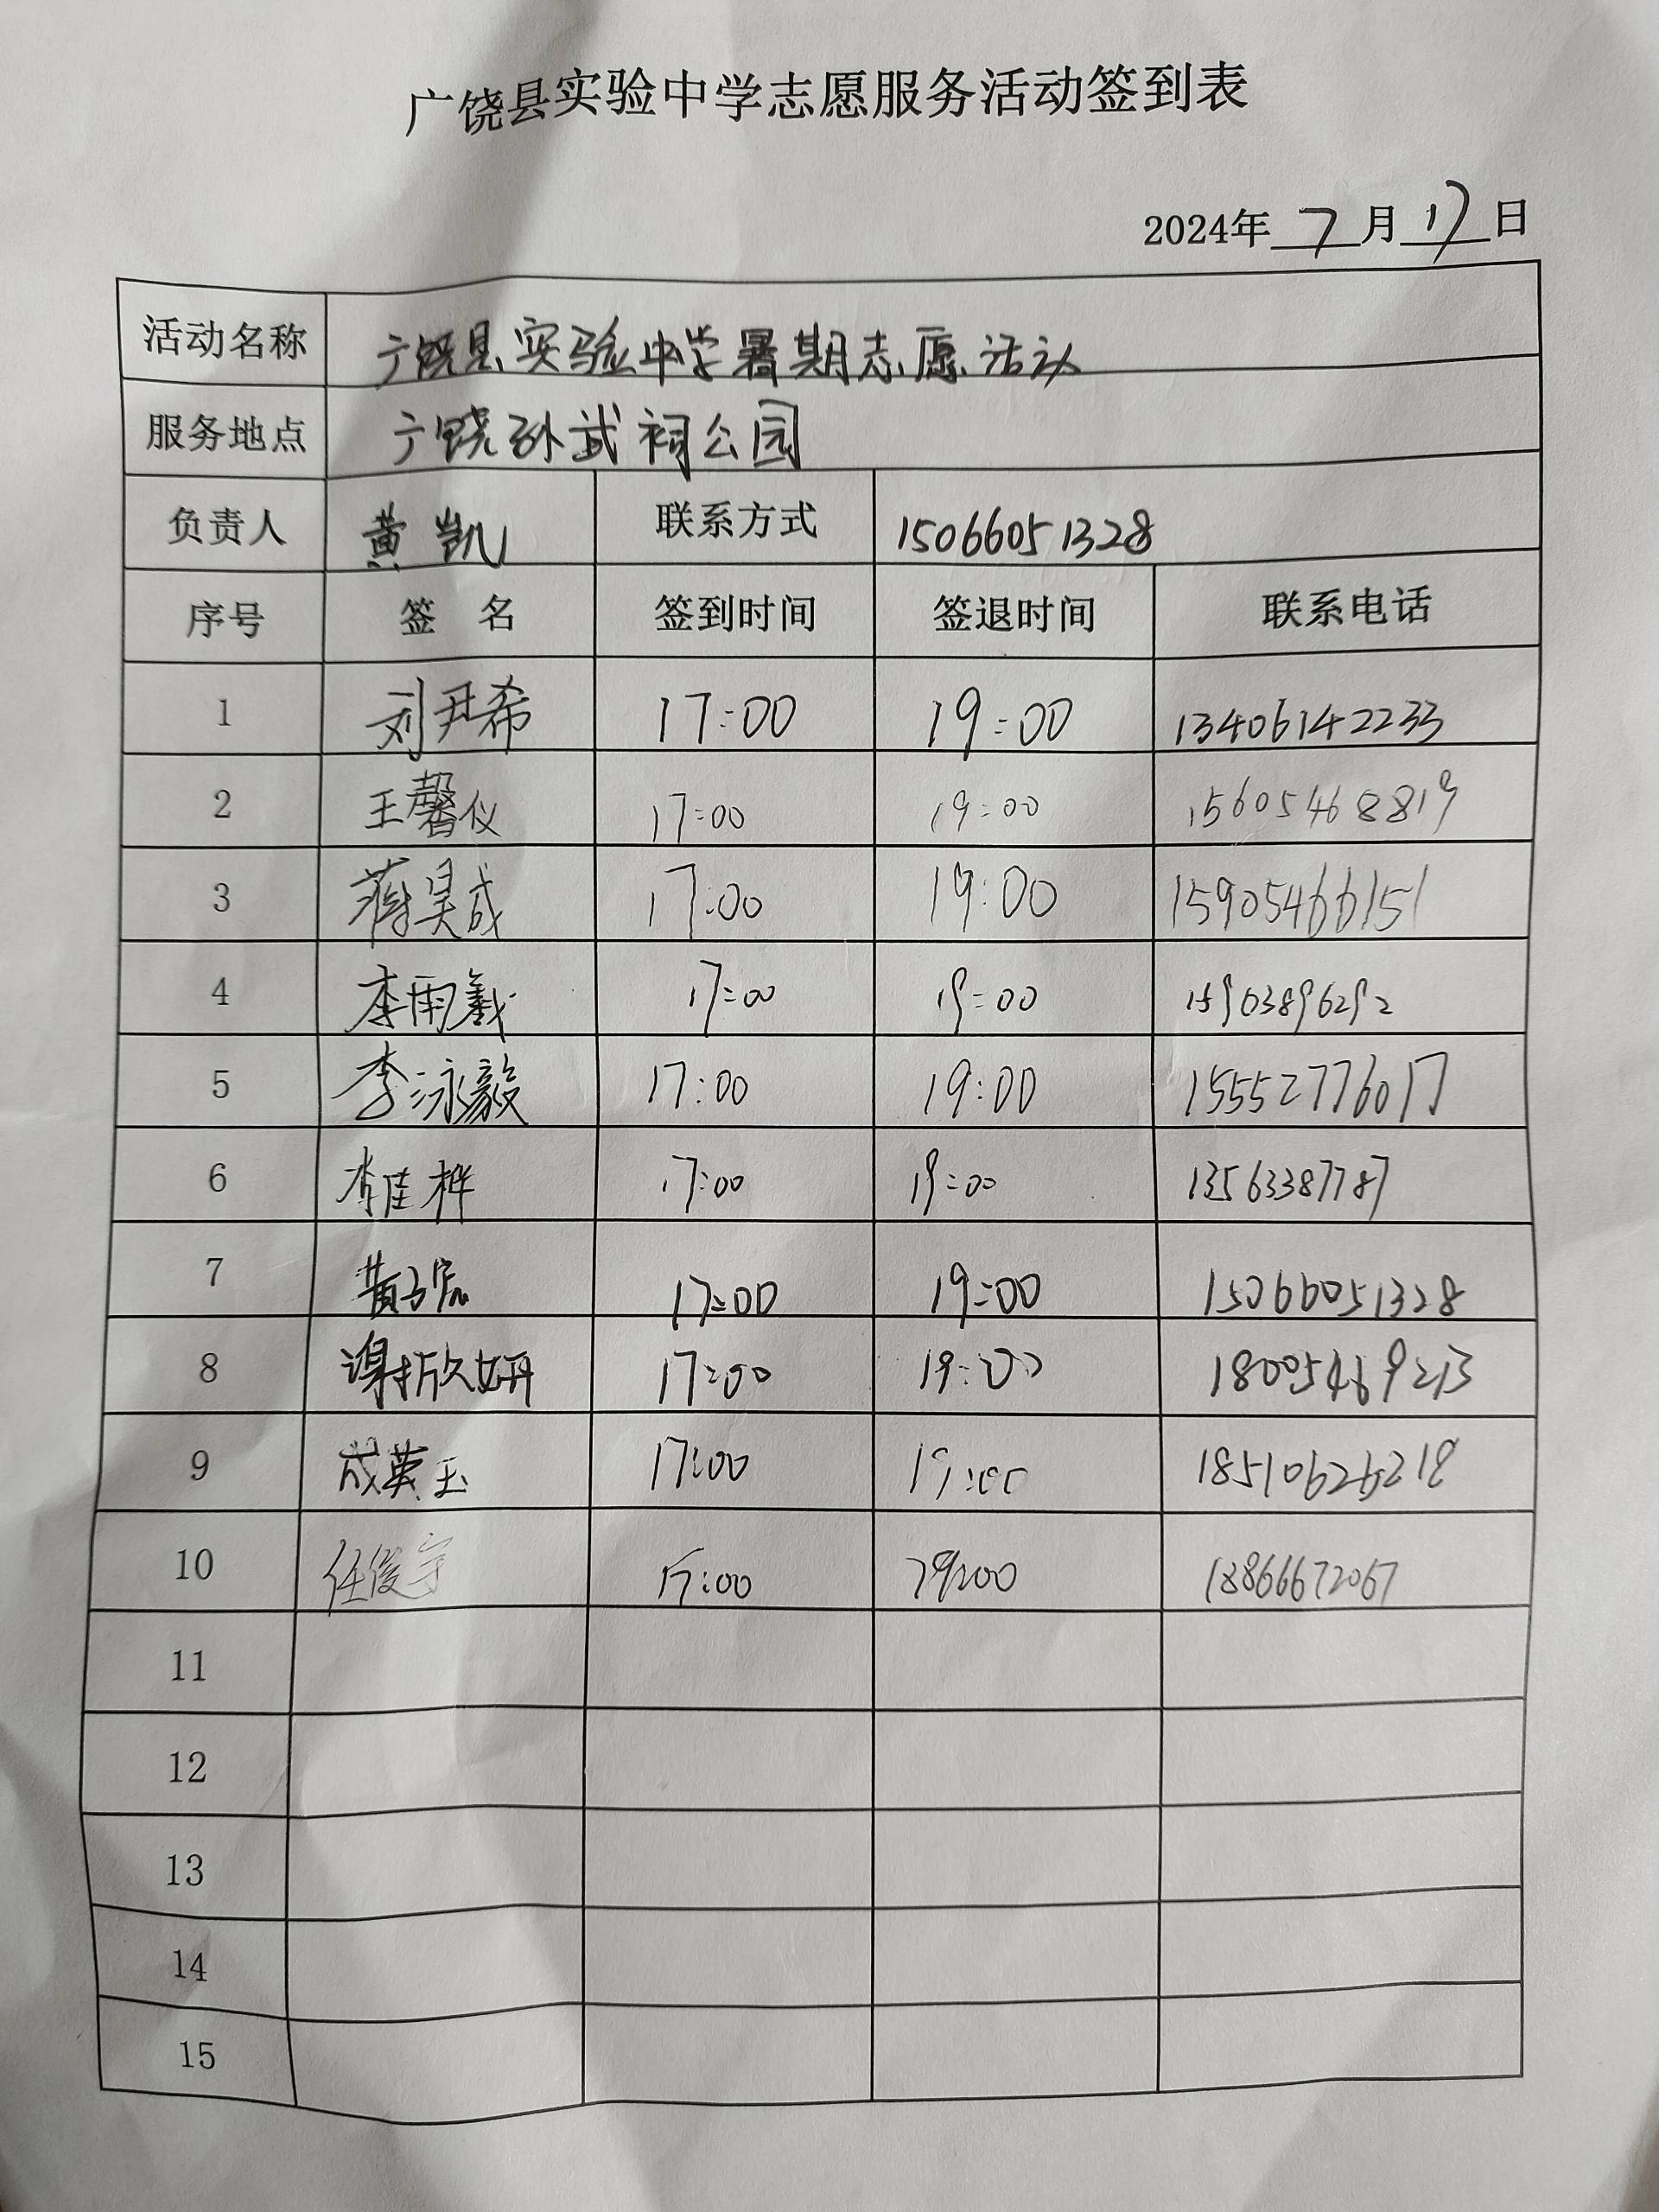 广饶县实验中学志愿服务活动签到表
2024年 7 月 17 日
活动名称 广饶县实验中学暑期志愿活动
服务地点 广饶孙武祠公园
负责人 黄凯 联系方式 15066051328
序号 签 名 签到时间 签退时间 联系电话
1 刘尹希 17:00 19:00 13406142233
2 王馨仪 17:00 19:00 15605468819
3 蒋昊成 17:00 19:00 15905466151
4 李雨羲 17:00 19:00 15903896292
5 李泳毅 17:00 19:00 15552776017
6 李佳桦 17:00 19:00 13563387787
7 黄子宸 17:00 19:00 15066051328
8 欣妍 17:00 19:00 18005469213
9 成英玉 17:00 19:00 18510626218
10 任俊宇 17:00 19:00 18866672067
11
12
13
14
15